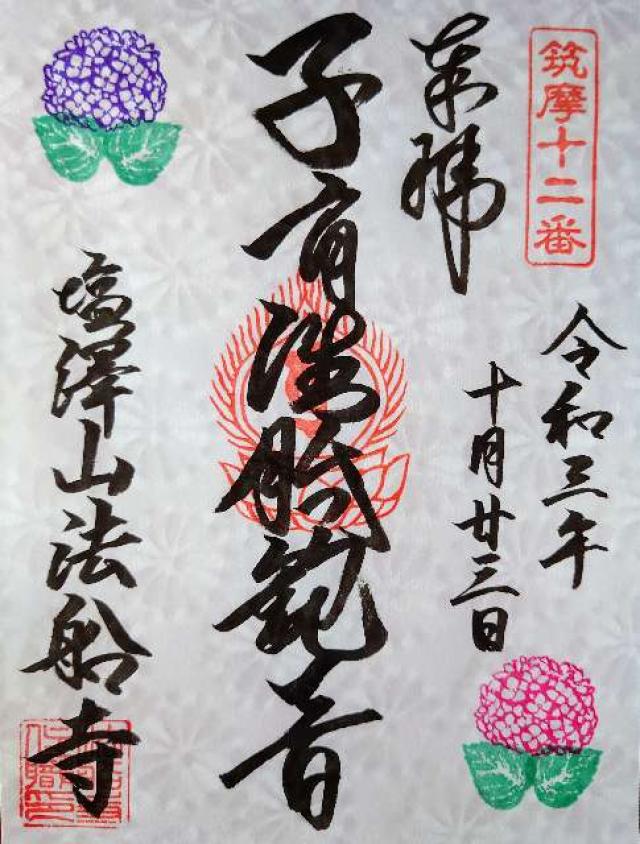 筑摩十二番
奉拝
令和三年
十月廿三日
子育准胝観音
塩澤山法船寺